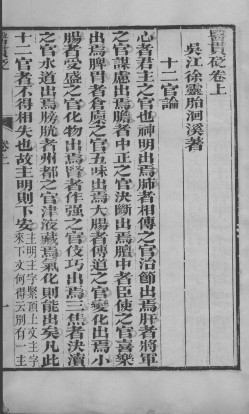 醫貫砭卷上
吳江徐靈胎洄溪著
十二官論
心者君主之官也神明出焉肺者相傅之官治節出焉肝者將軍
之官謀慮出焉膽者中正之官決斷出焉膻中者臣使之官喜樂
出焉脾胃者倉廩之官五味出焉大腸者傳道之官變化出焉小
腸者受盛之官化物出焉腎者作强之官伎巧出焉三焦者決瀆
之官水道出焉膀胱者州都之官津液藏焉氣化則能出矣凡此
十二官者不得相失也故主明則下安主明主字緊頂上文主字
來下文何得云別有一主
卷上
一